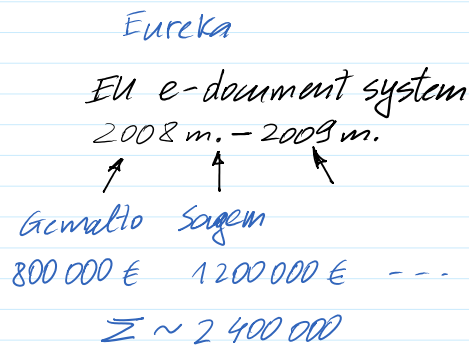 Eureka
EU e-document system
2008 m. - 2009 m.
Gemalto Sagem
800 000 € 1 200 000 € ---
Σ ~ 2 400 000